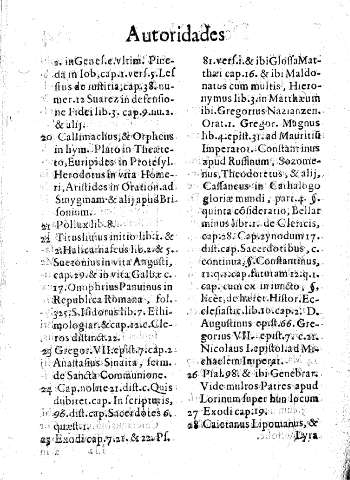 Autoridades
2. in Genes. c. vltim. Pine-
da in Iob, cap. 1. vers. 5. Les
sius de iustitia, cap. 38. nu-
mer. 12 Suarez in defensio
ne Fidei lib. 3. cap. 9. nu. 2.
& alij.
20 Callimachus, & Orpheus
in hym. Plato in Theæte-
to, Euripides in Protesyl.
Herodorus in vita Home-
ri, Aristides in Oration. ad
Smygmam & alij apud Bri
sonium.
21 Pollux lib. 8.
22 Titus liuius initio lib. 1. &
2. Halicarnaseus lib. 2. & 5.
Suetonius in vita Augusti,
cap. 29. & in vita Galbæ c.
17. Onuphrius Panuinus in
Republica Romana, fol.
325. S. Isidorus lib. 7. Ethi-
mologiar. & cap. 12. c. Cle-
ros distinct. 22.
23 Gregor. VII. epist. 7. cap. 2
Anastasius Sinaita, serm.
de Sancta Communione.
24 Cap. nolite 21. dist. c. Quis
dubitet cap. In scripturis,
96. dist. cap. Sacerdotes 6.
quæst. 1.
25 Exodi cap. 7. 21. & 22. Ps.
81. vers. 1. & ibi Glossa Mat
thæi cap. 16. & ibi Maldo-
natus cum multis, Hiero-
nymus lib. 3. in Matthæum
ibi. Gregorius Nazianzen.
Orat. 1. Gregor. Magnus
lib. 4. epist. 31. ad Mauritiũ
Imperator. Constantinus
apud Rufinum, Sozome-
nus, Theodoretus, & alij,
Cassaneus in Cathalogo
gloriæ mundi, part. 4. §.
quinta cõsideratio, Bellar
minus libr. 1. de Clericis,
cap. 28. Cap. 2 ynodum 17.
dist. cap. Sacerdotibus, c.
continua, §. Constantinus,
11. q. 1. cap. futuram 12. q. 1.
cap. cum ex iniuncto, §.
licèt, de hæret. Histor. Ec-
clesiastic. lib. 10. cap. 2. D.
Augustinus epist. 66. Gre-
gorius VII. epist. 7. c. 21.
Nicolaus I. epistol. ad Mi-
chaelem Imperat.
26 Psal. 98. & ibi Genebrar.
Vide multos Patres apud
Lorinum super hũn locum
27 Exodi cap. 19.
28 Caietanus Lipomanus, &
Lyra